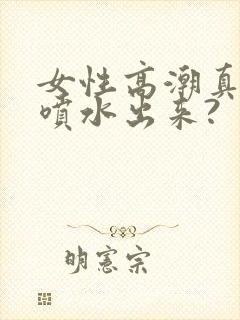 女性高潮真
噴水出来?
明憲宗